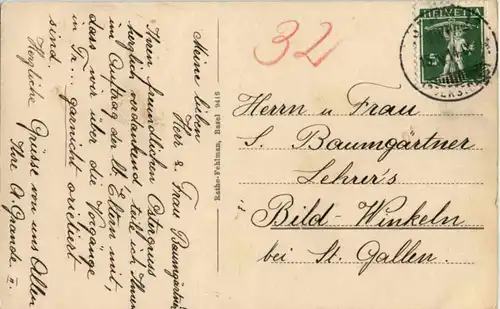 Meine lieben
Herr u. Frau Baumgärtner
Ihren freundlichen Ostergruss
herzlich verdankend teile ich Ihnen
im Auftrag der Eltern mit,
dass wir über die Vorgänge
in Gr... garnicht orientiert
sind.
Herzliche Grüsse von uns Allen
Ihre
Rathe-Fehlmann, Basel 9416
32
HELVETIA
5
Herrn u. Frau
S. Baumgärtner
Lehrer's
Bild-Winkeln
bei St. Gallen.